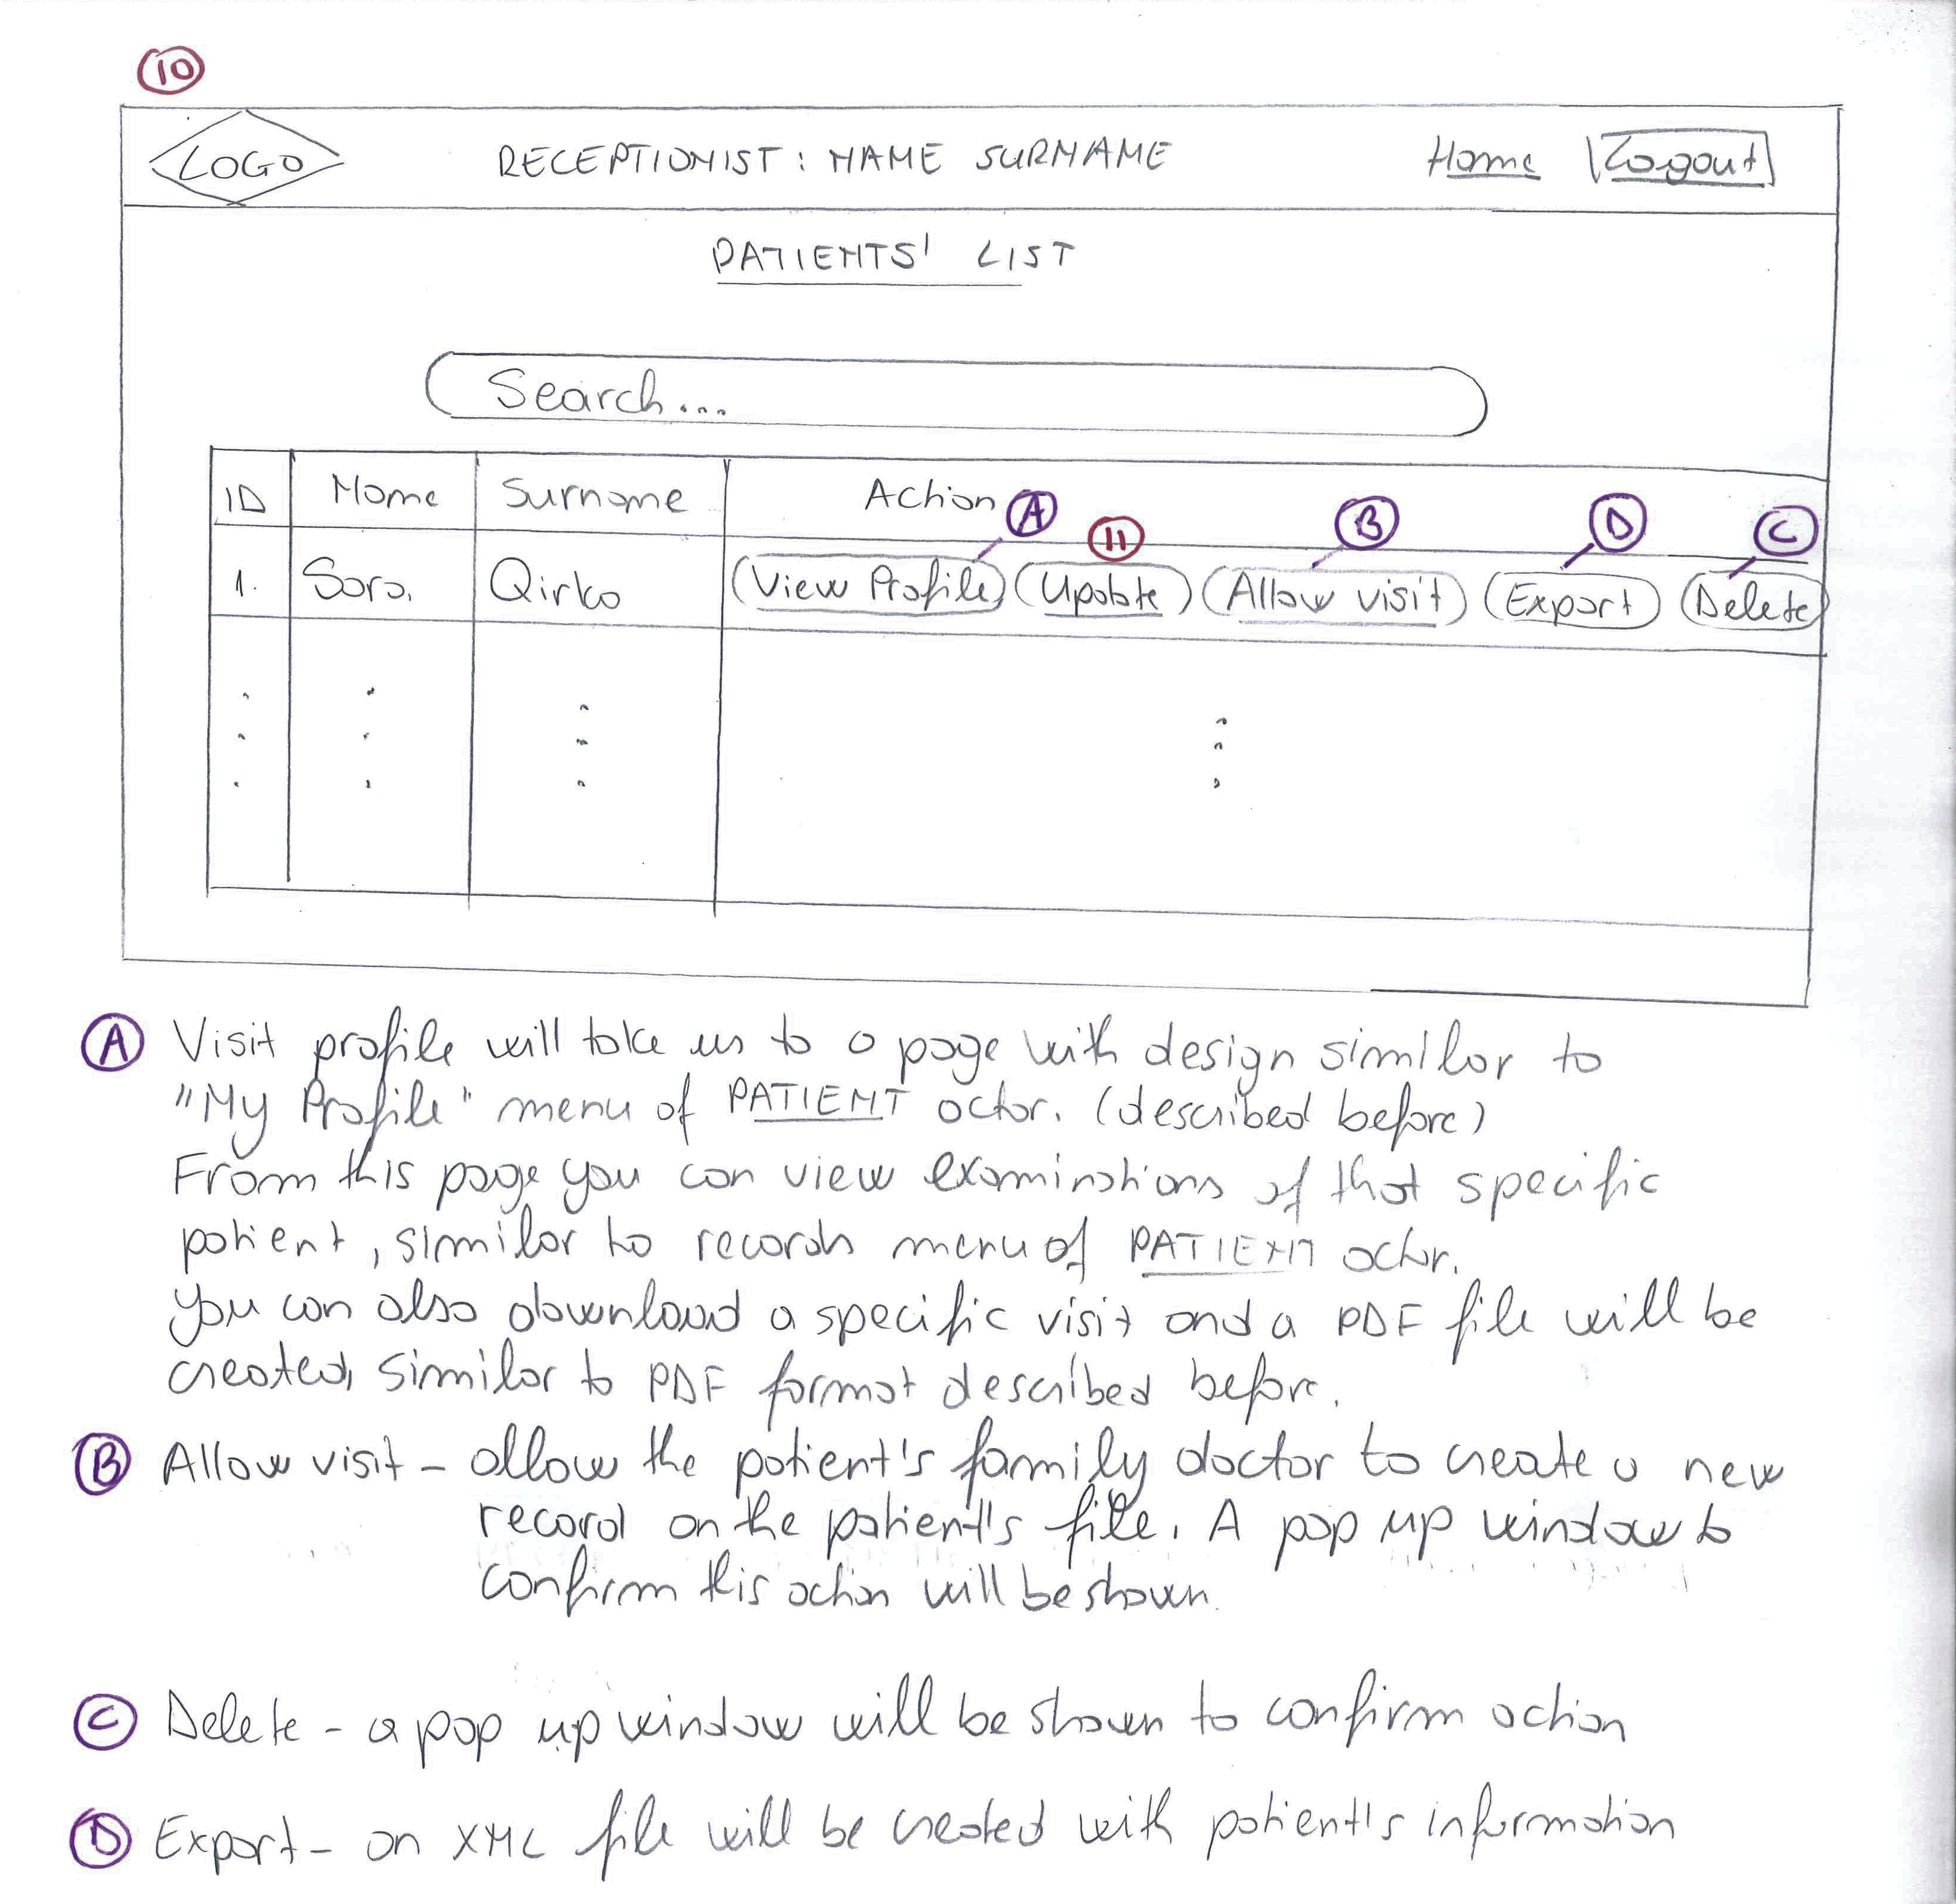 10
LOGO RECEPTIONIST: NAME SURNAME Home Logout
PATIENTS' LIST
Search...
ID Name Surname Action A 11 B D C
1. Sara Qirko View Profile Update Allow visit Export Delete
A Visit profile will take us to a page with design similar to
"My Profile" menu of PATIENT actor. (described before)
From this page you can view examinations of that specific
patient, similar to records menu of PATIENT actor.
You can also download a specific visit and a PDF file will be
created, similar to PDF format described before.
B Allow visit - allow the patient's family doctor to create a new
record on the patient's file. A pop up window to
confirm this action will be shown.
C Delete - a pop up window will be shown to confirm action
D Export - an XML file will be created with patient's information